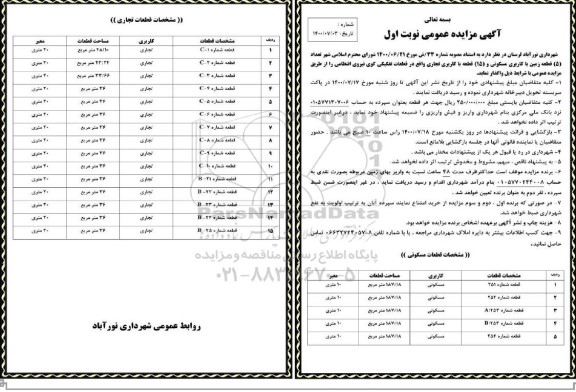 بسمه تعالی
شماره :
تاریخ : ۱۴۰۰/۰۷/۰۳
آگهی مزایده عمومی نوبت اول
شهرداری نورآباد لرستان در نظر دارد به استناد مصوبه شماره ۳۳/ش مورخ ۱۴۰۰/۰۶/۲۱ شورای محترم اسلامی شهر تعداد
(۵) قطعه زمین با کاربری مسکونی و (۱۵) قطعه با کاربری تجاری واقع در قطعات تفکیکی کوی نیروی انتظامی را از طریق
مزایده عمومی با شرایط ذیل واگذار نماید.
۱- کلیه متقاضیان مبلغ پیشنهادی خود را از تاریخ نشر این آگهی تا روز شنبه مورخ ۱۴۰۰/۰۷/۱۷ در پاکت
سربسته تحویل دبیرخانه شهرداری نموده و رسید دریافت نمایند .
۲- کلیه متقاضیان بایستی مبلغ ۲۵۰/۰۰۰/۰۰۰ ریال جهت هر قطعه بعنوان سپرده به حساب ۰۱۰۵۷۷۱۳۰۷۰۰۶
نزد بانک ملی مرکزی بنام شهرداری واریز و فیش واریزی را ضمیمه پیشنهاد خود نماید . در غیر اینصورت
ترتیب اثر داده نخواهد شد .
۳- بازگشایی و قرائت پیشنهادها در روز یکشنبه مورخ ۱۴۰۰/۰۷/۱۸ راس ساعت ۱۰ صبح می باشد . حضور
متقاضیان یا نماینده قانونی آنها در جلسه بازگشایی بلامانع است.
۴- شهرداری در رد یا قبول هر یک از پیشنهادات مختار می باشد.
۵- به پیشنهاد ناقص ، مبهم، مشروط و مخدوش ترتیب اثر داده نخواهد شد.
۶- برنده مزایده موظف است حداکثر ظرف مدت ۴۸ ساعت نسبت به واریز بهای زمین مربوطه بصورت نقدی به
حساب ۰۱۰۵۷۷۰۲۴۴۰۰۸ بنام درآمد شهرداری اقدام و رسید دریافت نماید . در غیر اینصورت ضمن ضبط
سپرده ، نفر دوم به عنوان برنده تعیین خواهد شد .
۷- در صورتی که برنده اول ، دوم و سوم مزایده از خرید امتناع نمایند سپرده آنان به ترتیب اولویت به نفع
شهرداری ضبط خواهد شد.
۸- هزینه چاپ و نشر آگهی برعهده اشخاص برنده مزایده خواهد بود.
۹- جهت کسب اطلاعات بیشتر به دایره املاک شهرداری مراجعه ، یا با شماره تلفن ۰۶۶۳۲۷۲۴۰۵۷۰۸ تماس
حاصل نمائید.
(( مشخصات قطعات مسکونی ))
ردیف مشخصات قطعات کاربری مساحت قطعات معبر
۱ قطعه شماره ۲۵۱ مسکونی ۱۸۷/۱۸ متر مربع ۱۰ متری
۲ قطعه شماره ۲۵۲ مسکونی ۱۸۷/۱۸ متر مربع ۱۰ متری
۳ قطعه شماره A/۲۵۳ مسکونی ۱۸۷/۱۸ متر مربع ۱۰ متری
۴ قطعه شماره B/۲۵۳ مسکونی ۱۸۷/۱۸ متر مربع ۱۰ متری
۵ قطعه شماره ۲۵۴ مسکونی ۱۸۷/۱۸ متر مربع ۱۰ متری
(( مشخصات قطعات تجاری ))
ردیف مشخصات قطعات کاربری مساحت قطعات معبر
۱ قطعه شماره C-۰۱ تجاری ۲۸/۱۰ متر مربع ۲۰ متری
۲ قطعه شماره C-۰۲ تجاری ۲۰ متری
۳ قطعه شماره C-۰۳ تجاری ۲۰ متری
۴ قطعه شماره C-۰۴ تجاری ۳۶ متر مربع ۲۰ متری
۵ قطعه شماره C-۰۵ تجاری ۳۶ متر مربع ۲۰ متری
۶ قطعه شماره C-۰۶ تجاری ۳۶ متر مربع ۲۰ متری
۷ قطعه شماره C-۰۷ تجاری ۳۶ متر مربع ۲۰ متری
۸ قطعه شماره C-۰۸ تجاری ۳۶ متر مربع ۲۰ متری
۹ قطعه شماره C-۰۹ تجاری ۳۶ متر مربع ۲۰ متری
۱۰ قطعه شماره C-۱۰ تجاری ۳۶ متر مربع ۲۰ متری
۱۱ قطعه شماره B-۲۱ تجاری ۳۶ متر مربع ۲۰ متری
۱۲ قطعه شماره B-۲۲ تجاری ۳۶ متر مربع ۲۰ متری
۱۳ قطعه شماره B-۲۳ تجاری ۳۶ متر مربع ۲۰ متری
۱۴ قطعه شماره B-۲۴ تجاری ۳۶ متر مربع ۲۰ متری
۱۵ قطعه شماره B-۲۵ تجاری ۳۶ متر مربع ۲۰ متری
ParsNamadData
پایگاه اطلاع رسانی مناقصه و مزایده
۰۲۱-۸۸۳۴۹۶۷۰-۵
روابط عمومی شهرداری نورآباد